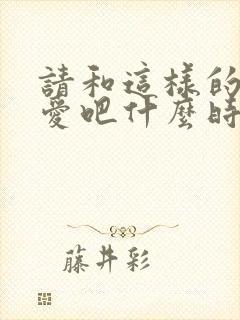 請和這樣的
愛吧什麼時
藤井彩